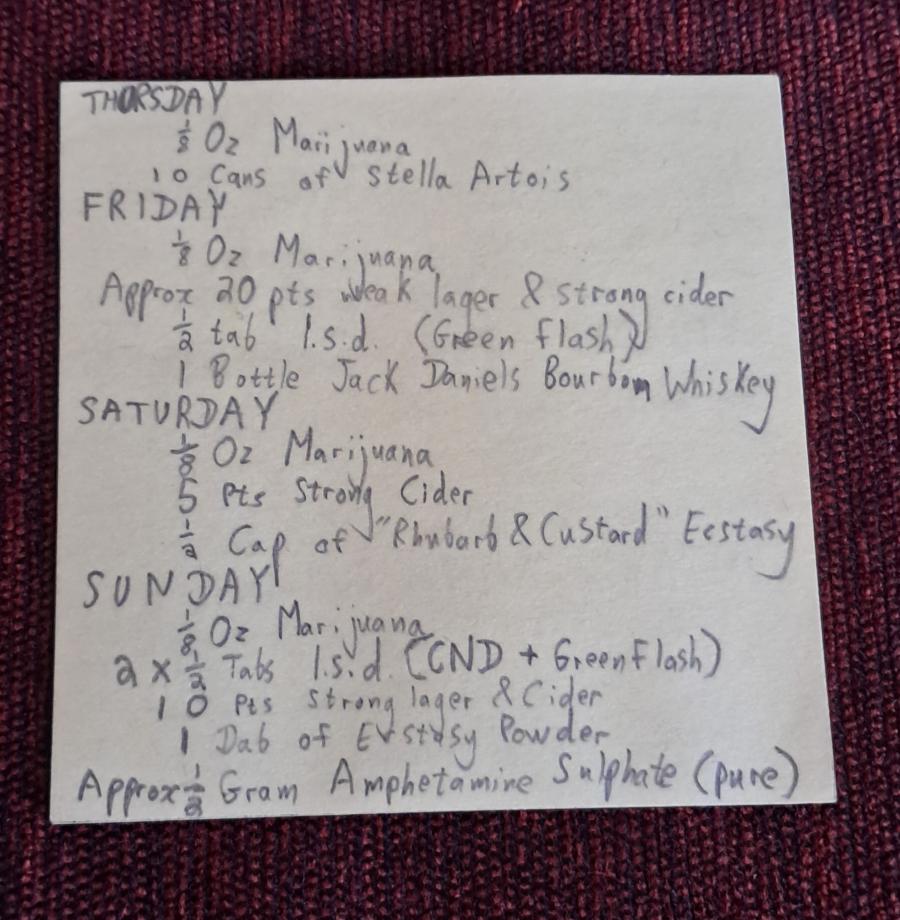 THURSDAY
1/8 Oz Marijuana
10 Cans of Stella Artois
FRIDAY
1/8 Oz Marijuana
Approx 20 pts Weak lager & strong cider
1/2 tab l.s.d. (Green flash)
1 Bottle Jack Daniels Bourbon Whiskey
SATURDAY
1/8 Oz Marijuana
5 Pts Strong Cider
1/2 Cap of "Rhubarb & Custard" Ecstasy
SUNDAY
1/8 Oz Marijuana
2 x 1/2 Tabs l.s.d. (CND + Green flash)
10 Pts Strong lager & Cider
1 Dab of Exstasy Powder
Approx 1/2 Gram Amphetamine Sulphate (pure)